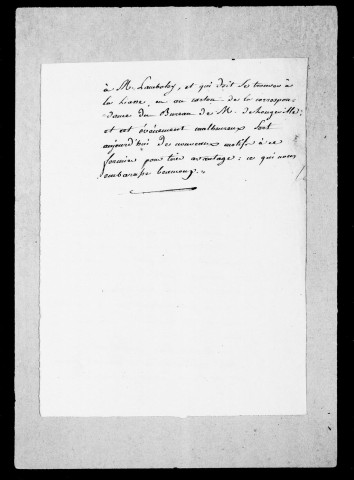 à M. Lauholey, et qui doit se trouver à
la liasse en ou carton de la correspon-
dance du Bureau de M. de
et cet événement malheureux sert
aujourd'hui de nouveaux motifs à ce
fermier pour tirer avantage : ce qui nous
embarasse beaucoup.